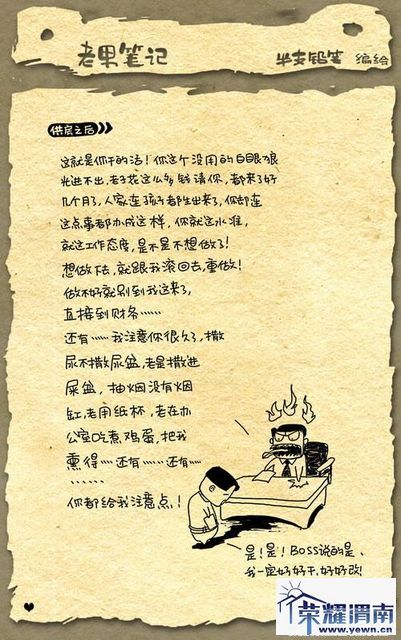 老果笔记
半支铅笔 编绘
供房之后
这就是你干的活！你这个没用的白眼狼
光进不出，老子花这么多钱请你，都来了好
几个月了，人家连孩子都生出来了，你却连
这点事都办成这样，你就这水准，
就这工作态度，是不是不想做了！
想做下去，就跟我滚回去，重做！
做不好就别到我这来了，
直接到财务……
还有……我注意你很久了，撒
尿不撒尿盆，老是撒进
屎盆，抽烟没有烟
缸，老用纸杯，老在办
公室吃煮鸡蛋，把我
熏得……还有……还有……
……
你都给我注意点！
是！是！BOSS说的是、
我一定好好干、好好改！
荣耀渭南
www.yewn.cn